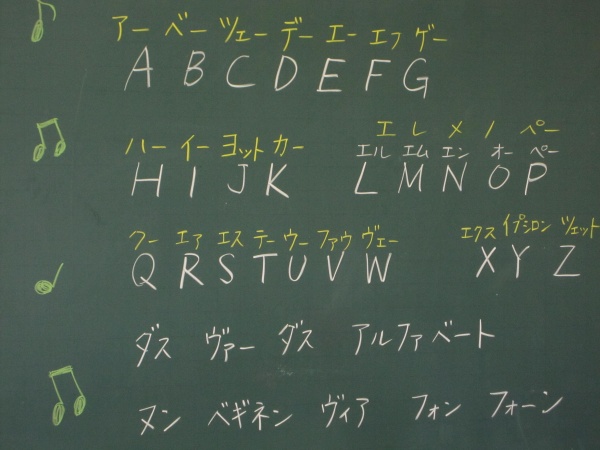 アー ベー ツェー デー エー エフ ゲー
A B C D E F G
エ レ メ ノ ペー
ハー イー ヨット カー エル エム エン オー ペー
H I J K L M N O P
クー エア エス テー ウー ファウ ヴェー エクス イプシロン ツェット
Q R S T U V W X Y Z
ダス ヴァー ダス アルファベート
ヌン ベギネン ヴィア フォン フォーン